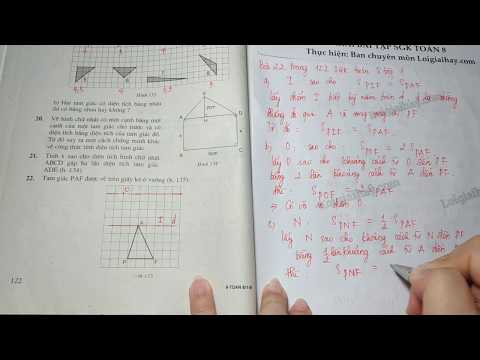 Hình 133
b) Các tam giác có diện tích bằng nhau
thì có bằng nhau hay không ?
20. Vẽ hình chữ nhật có một cạnh bằng một
cạnh của một tam giác cho trước và có
diện tích bằng diện tích của tam giác đó.
Từ đó suy ra một cách chứng minh khác
về công thức tính diện tích tam giác.
21. Tính x sao cho diện tích hình chữ nhật
ABCD gấp ba lần diện tích tam giác
ADE (h.134).
22. Tam giác PAF được vẽ trên giấy kẻ ô vuông (h.135).
E
A
D
B
C
Hình 134
O
A
I
d
P
F
122
BÀI TẬP SGK TOÁN 8
Thực hiện: Ban chuyên môn Loigiaihay.com
Bài 22 trang 122 SGK toán 8 tập 1
a) I sao cho S PIF = S PAF
lấy điểm I bất kỳ nằm trên d // PF
đi qua A và
b) O sao cho S POF = 2 S PAF
lấy O sao cho khoảng cách từ O đến PF
bằng 2 lần khoảng cách từ A đến PF.
thì S POF = 2 S PAF
=> Có vô số điểm O
c) N S PNF = 1/2 S PAF
lấy N sao cho khoảng cách từ N đến PF
bằng 1/2 lần khoảng cách từ A đến PF
thì S PNF =
Loigiaihay.com